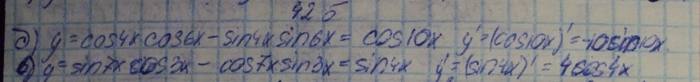 42 б
д) y = cos4x cos6x - sin4x sin6x = cos10x y' = (cos10x)' = -10sin10x
в) y = sin7x cos3x - cos7x sin3x = sin4x y' = (sin4x)' = 4cos4x